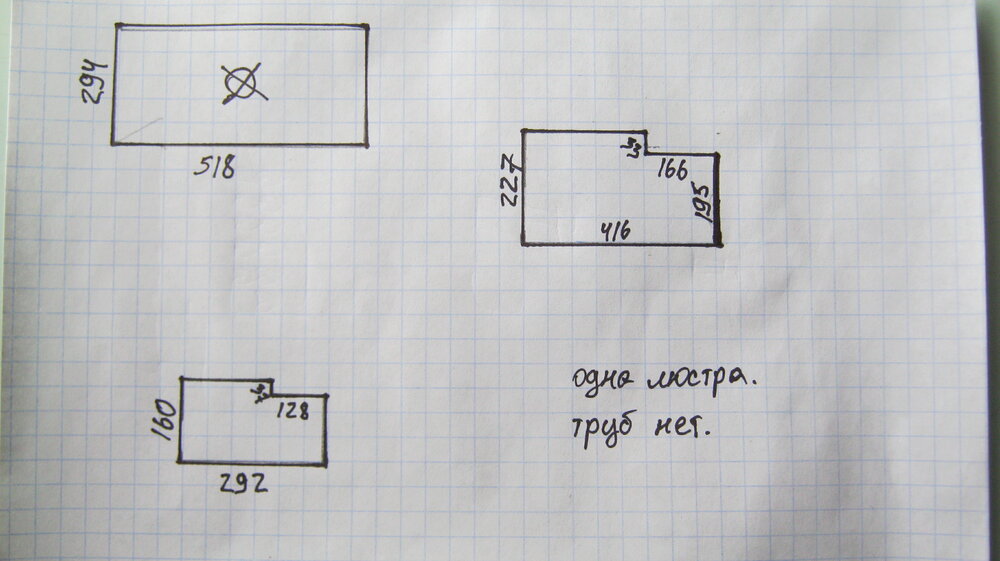 294
518
227
166
195
416
160
128
292
одна люстра.
труб нет.